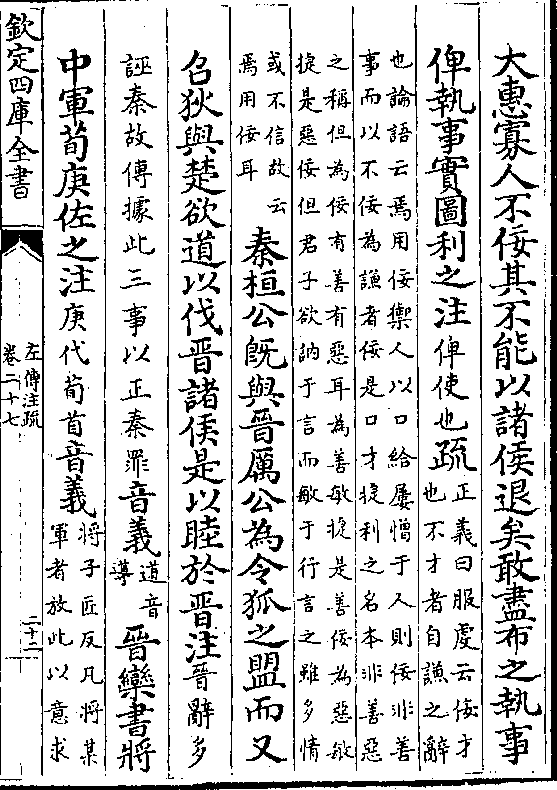 大惠寡人不佞其不能以諸侯退矣敢盡布之執事
俾執事實圖利之注俾使也疏正義曰服虔云佞才
也不才者自謙之辭
也論語云焉用佞禦人以口給屢憎于人則佞非善
事而以不佞為謙者佞是口才捷利之名本非善惡
之稱但為佞有善有惡耳為善敏捷是善佞為惡敏
捷是惡佞但君子欲訥于言而敏于行言之雖多情
或不信故云
焉用佞耳
秦桓公既與晉厲公為令狐之盟而又
召狄與楚欲道以伐晉諸侯是以睦於晉注晉辭多
誣秦故傳據此三事以正秦罪音義道音
導
晉欒書將
中軍荀庚佐之注庚代荀首音義將子匠反凡將某
軍者放此以意求
欽定四庫全書
左傳注疏
卷二十七
二十二